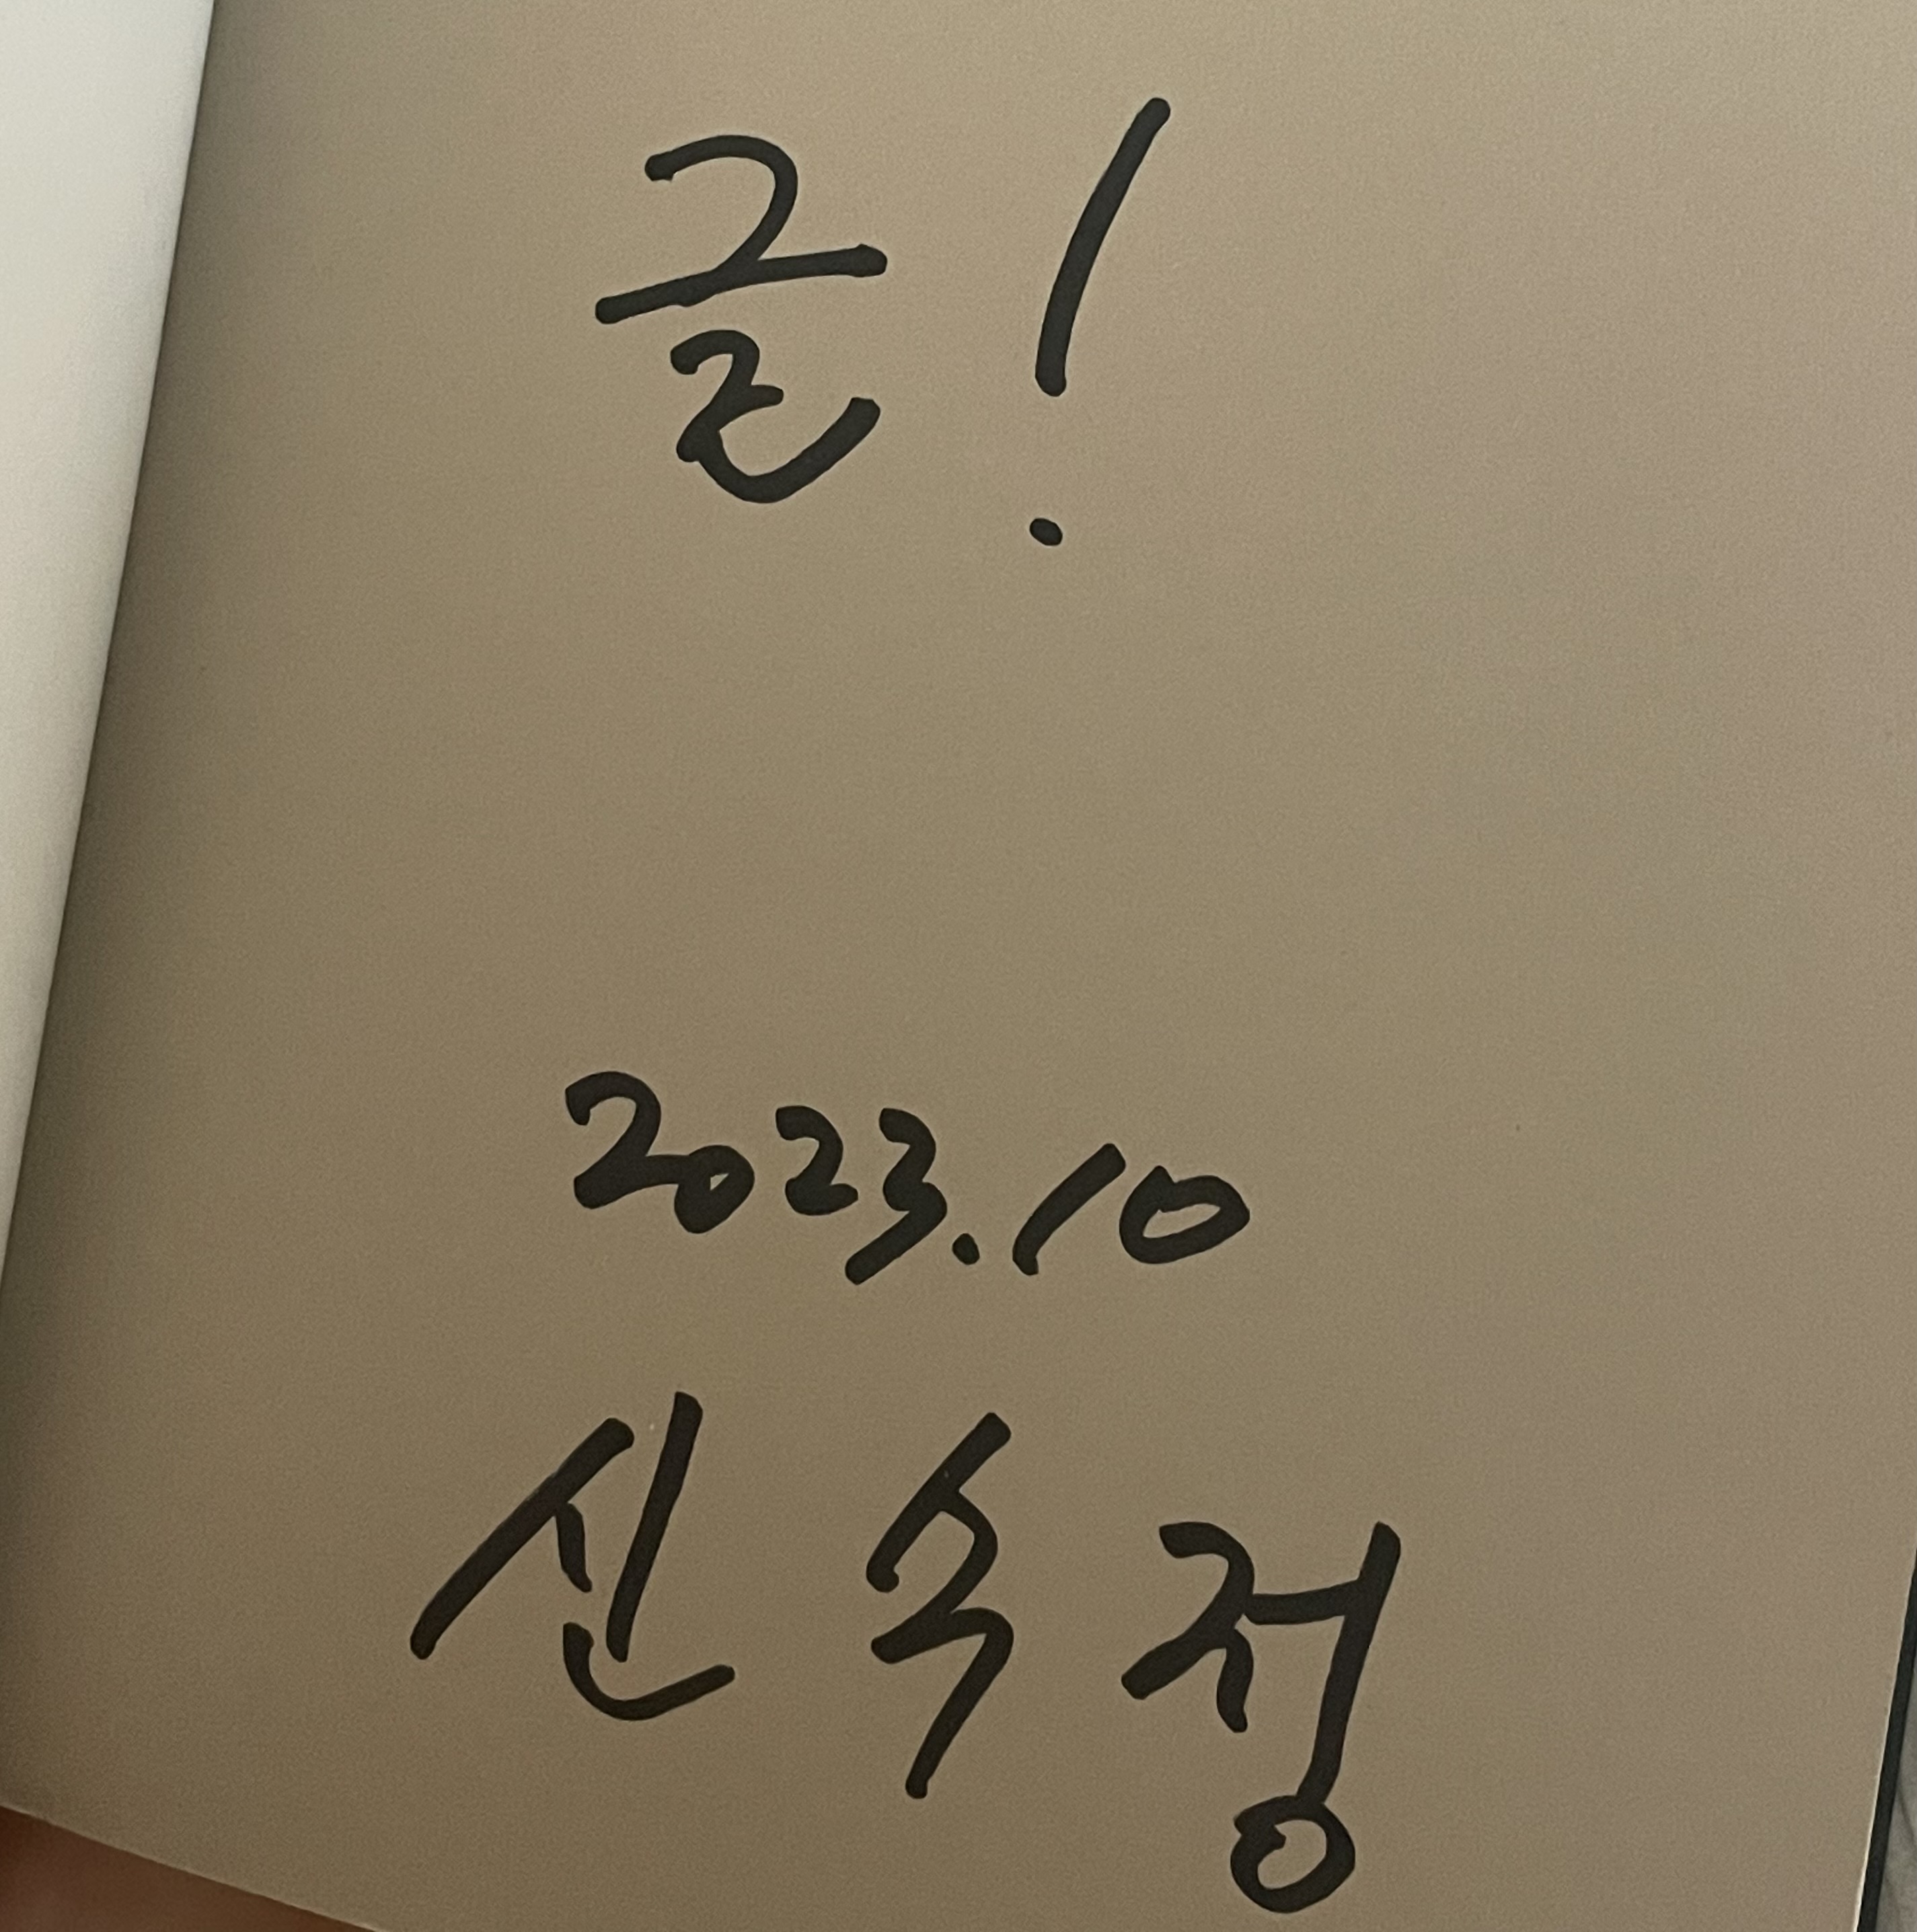 글!
2023.10
신숙정